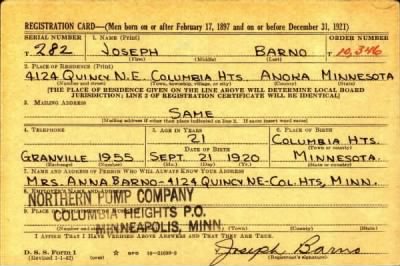 REGISTRATION CARD—(Men born on or after February 17, 1897 and on or before December 31, 1921)
SERIAL NUMBER 1. NAME (Print) ORDER NUMBER
T 282 JOSEPH BARNO 10,346
(First) (Middle) (Last)
2. PLACE OF RESIDENCE (Print)
4124 QUINCY N.E. COLUMBIA HTS. ANOKA MINNESOTA
(Number and street) (Town, township, village, or city) (County) (State)
[THE PLACE OF RESIDENCE GIVEN ON THE LINE ABOVE WILL DETERMINE LOCAL BOARD
JURISDICTION; LINE 2 OF REGISTRATION CERTIFICATE WILL BE IDENTICAL]
3. MAILING ADDRESS
SAME
[Mailing address if other than place indicated on line 2. If same insert word same]
4. TELEPHONE 5. AGE IN YEARS 6. PLACE OF BIRTH
21 COLUMBIA HTS.
DATE OF BIRTH (Town or county)
GRANVILLE 1955 SEPT. 21 1920 MINNESOTA.
(Mo.) (Day) (Yr.) (State or country)
7. NAME AND ADDRESS OF PERSON WHO WILL ALWAYS KNOW YOUR ADDRESS
MRS. ANNA BARNO-4124 QUINCY NE-COL. HTS, MINN.
8. EMPLOYER'S NAME AND ADDRESS
NORTHERN PUMP COMPANY
COLUMBIA HEIGHTS P.O.
MINNEAPOLIS, MINN.
I AFFIRM THAT I HAVE VERIFIED ABOVE ANSWERS AND THAT THEY ARE TRUE.
D. S. S. Form 1
(Revised 1-1-42)
Joseph Barno
(Registrant's signature)